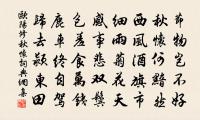 節物豈不好
秋懷何黯然
西風酒旗市
細雨菊花天
感事悲雙鬢
包羞食萬錢
鹿車終自駕
歸去潁東田
歐陽修秋懷詞典網集